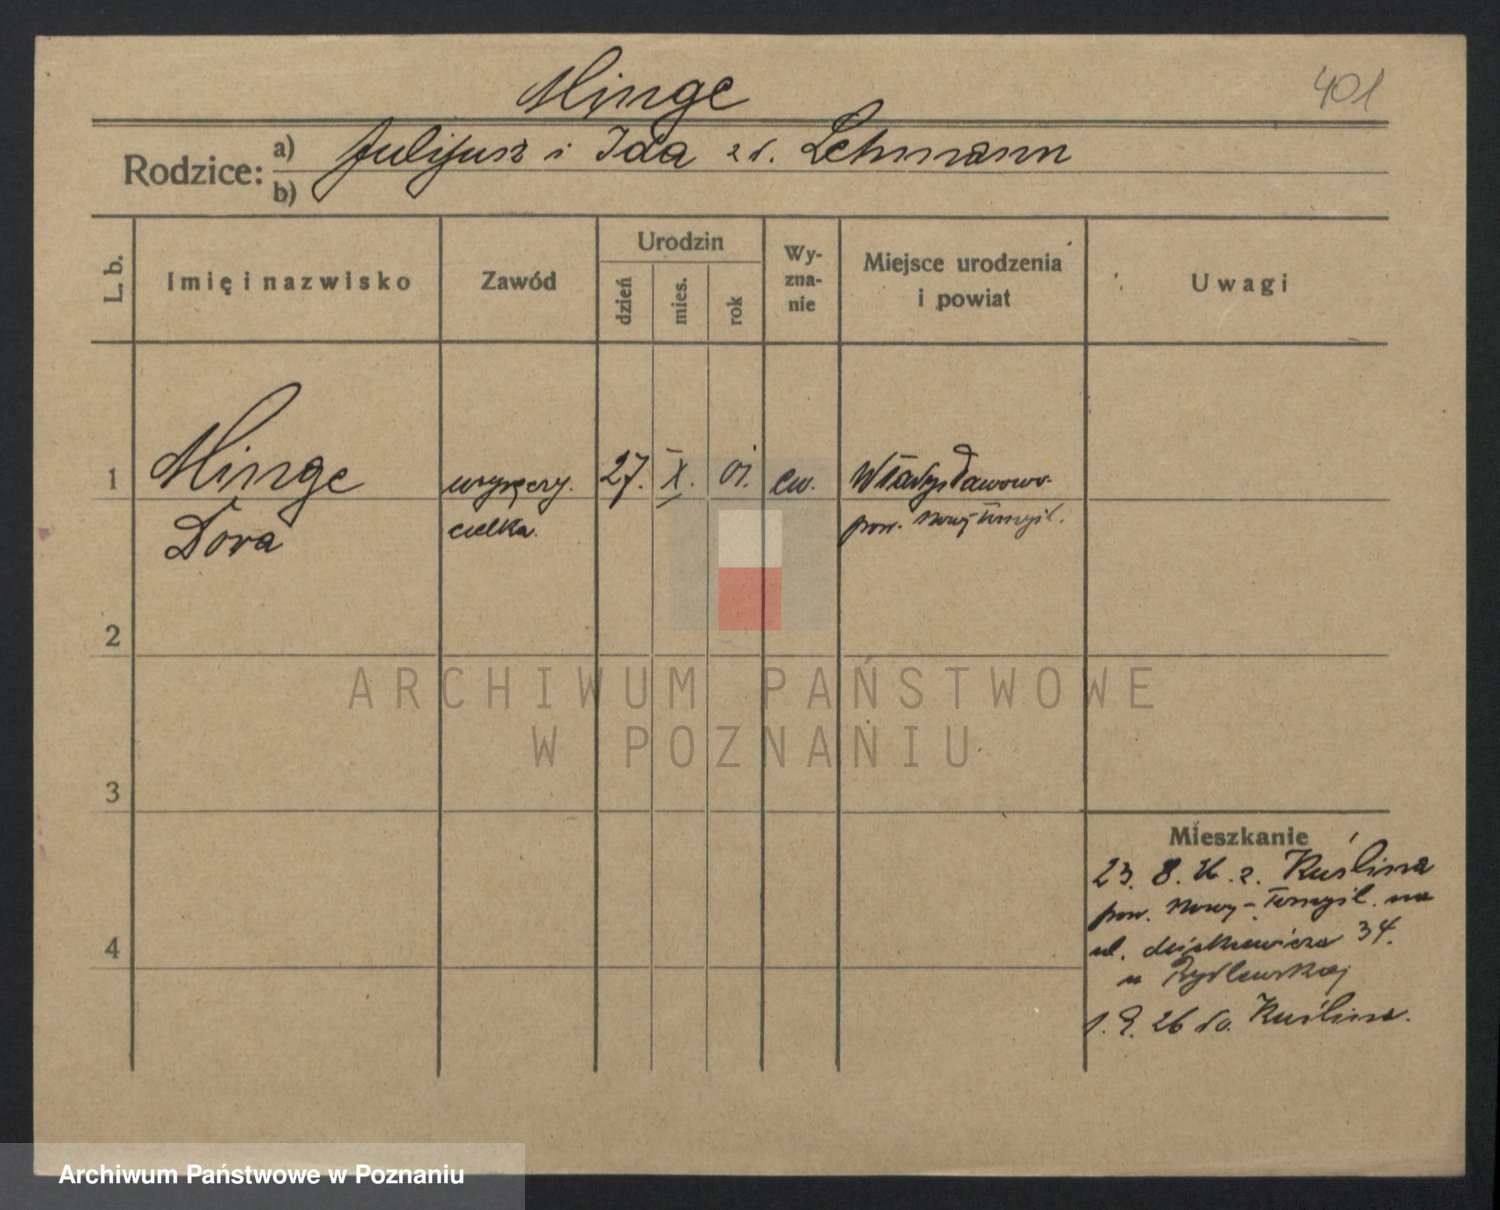 Minge
401
Rodzice: a) Julijusz i Ida zd. Lehmann
b)
L. b.
Imię i nazwisko
Zawód
Urodzin
dzień
mies.
rok
Wy-
zna-
nie
Miejsce urodzenia
i powiat
Uwagi
1
Minge
Dora
wyręczy.
cielka.
27.
X.
01.
ew.
Władysławowo.
pow. Nowy Tomyśl.
2
3
4
Mieszkanie
23. 8. 26. z. Kuślina
pow. Nowy-Tomyśl. na
ul. 34.
u Rydlewskiej
1. 9. 26 do. Kuślina.
ARCHIWUM PAŃSTWOWE
W POZNANIU
Archiwum Państwowe w Poznaniu